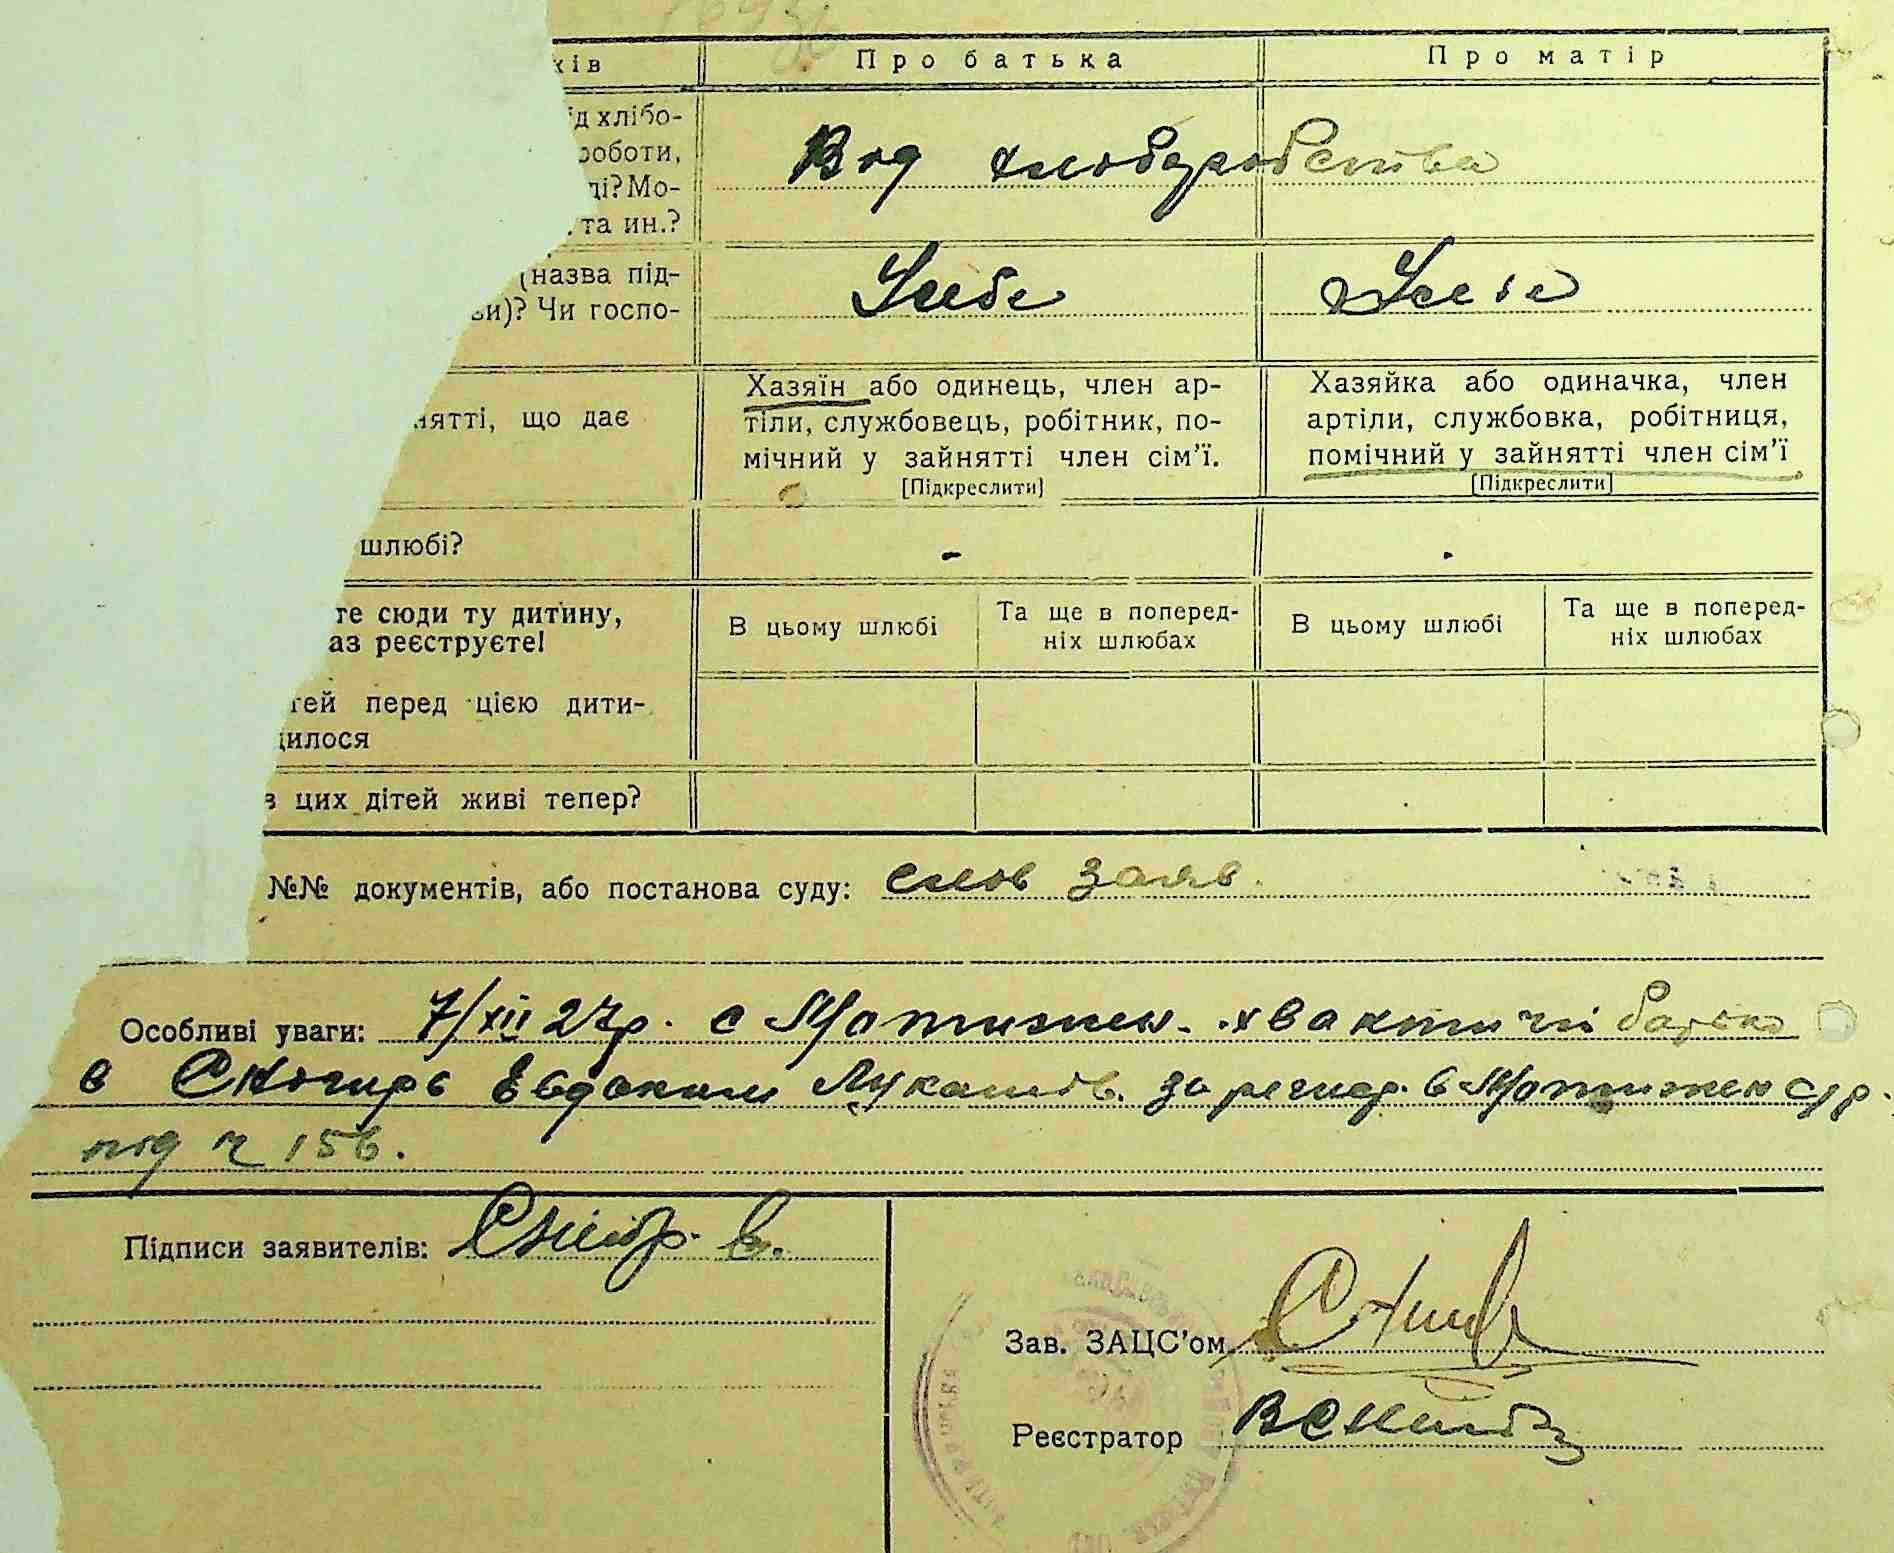 ків Про батька Про матір
ід хлібо-
роботи,
ді? Мо-
та ин.?
Вод хлоборобства
(назва під-
ви)? Чи госпо-
У себе У себе
нятті, що дає
Хазяїн або одинець, член ар-
тіли, службовець, робітник, по-
мічний у зайнятті член сім’ї.
[Підкреслити]
Хазяйка або одиначка, член
артіли, службовка, робітниця,
помічний у зайнятті член сім’ї
[Підкреслити]
шлюбі? - -
те сюди ту дитину,
аз реєструєте!
В цьому шлюбі
Та ще в поперед-
ніх шлюбах
В цьому шлюбі
Та ще в поперед-
ніх шлюбах
тей перед цією дити-
дилося
з цих дітей живі тепер?
№№ документів, або постанова суду: слов заяв.
Особливі уваги: 7/XII 27р. с Мотижен. хвактичні батько
є Снігирь Евдоким Лукашів. зарегистр. в Мотижен с/р.
під ч 156.
Підписи заявителів:
Зав. ЗАЦС’ом
Реєстратор